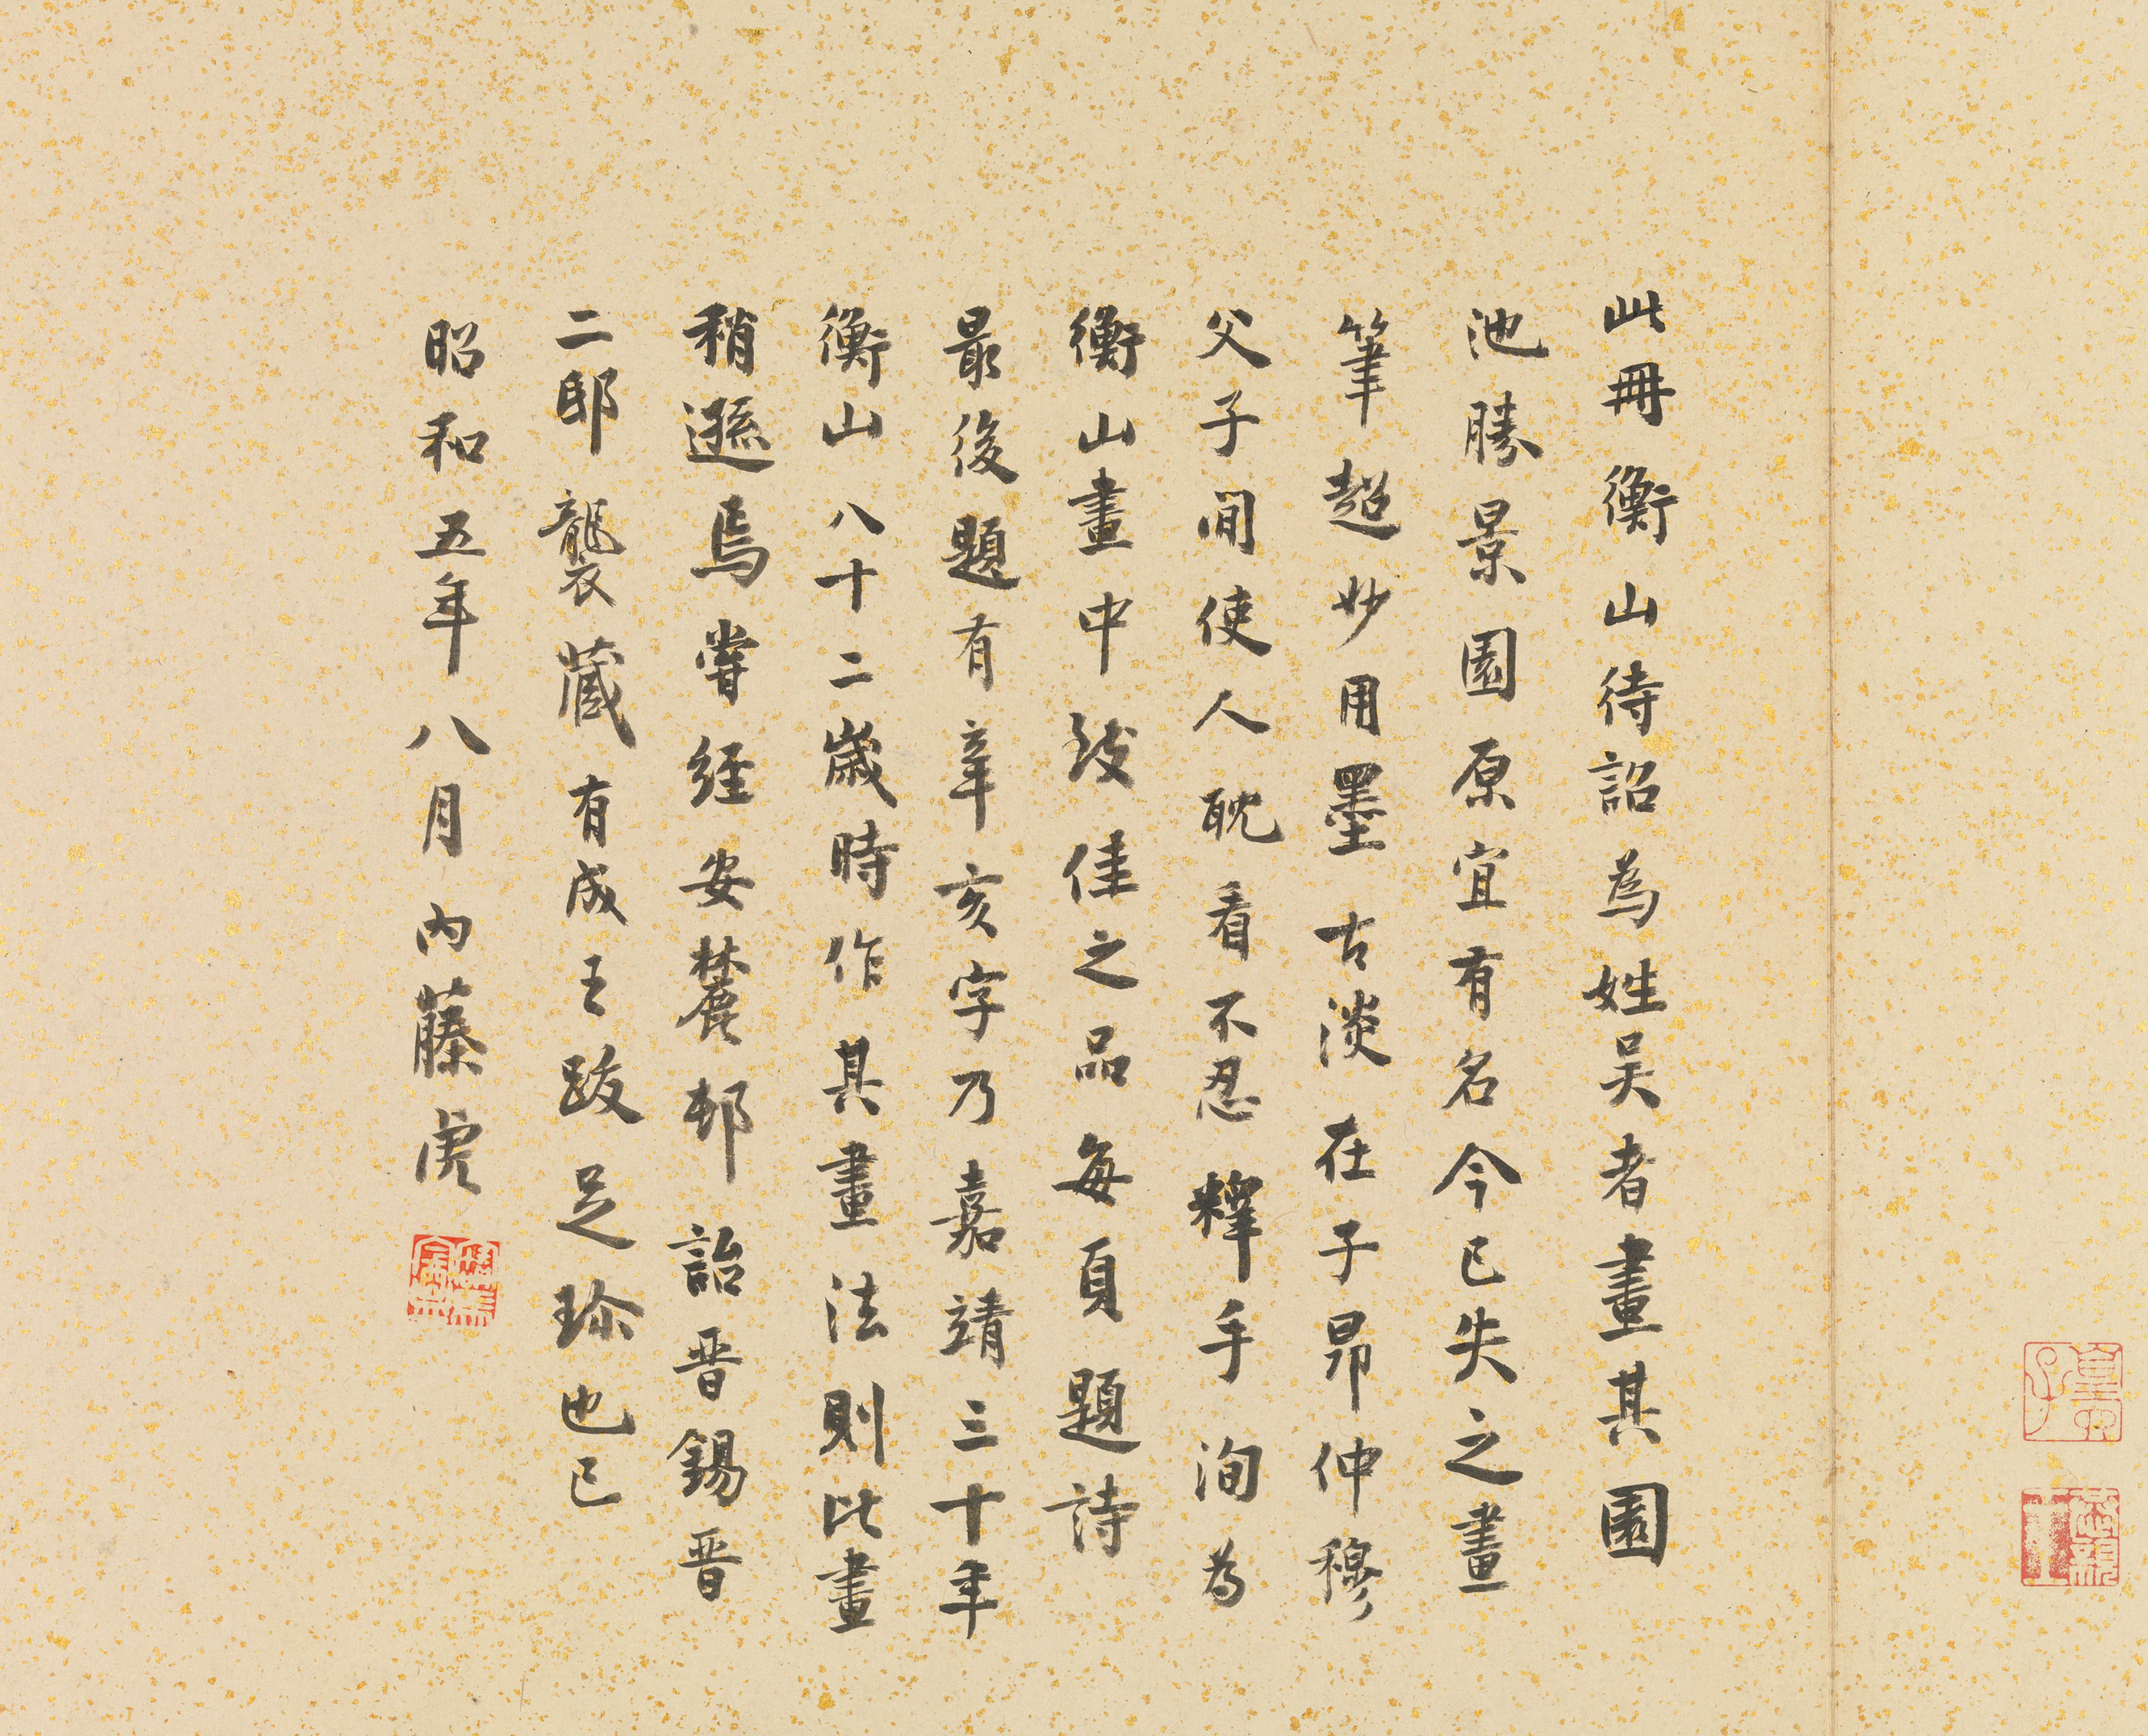 此冊衡山待詔為姓吳者畫其園
池勝景園原宜有名今已失之畫
筆超妙用墨古淡在子昂仲穆
父子間使人耽看不忍釋手洵為
衡山畫中致佳之品每頁題詩
最後題有辛亥字乃嘉靖三十年
衡山八十二歲時作其畫法則比畫
稍遜焉嘗經安麓邨詒晋錫晋
二邸襲藏有成王跋足珍也已
昭和五年八月內藤虎
皇十一子
詒晉齋印